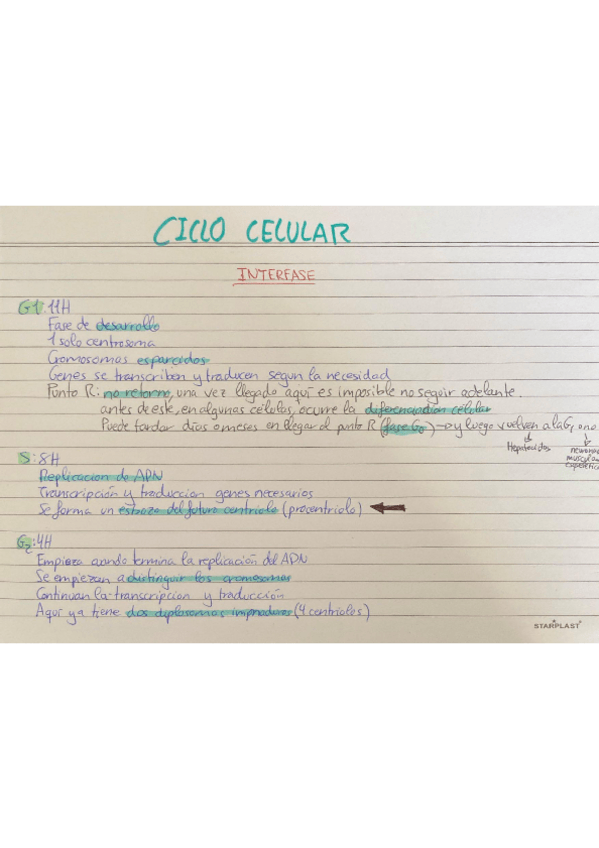 CICLO CELULAR
INTERFASE
G1: 11H
Fase de desarrollo
1 solo centrosoma
Cromosomas esparcidos
Genes se transcriben y traducen segun la necesidad
Punto R: no retorno, una vez llegado aquí es imposible no seguir adelante.
antes de este, en algunas células, ocurre la diferenciación celular
Puede tardar días o meses en llegar al punto R (fase G0) → y luego vuelven a la G1 o no
Hepatocitos
neuronas
S: 8H
Replicacion de ADN
Transcripción y traduccion genes necesarios
Se forma un esbozo del futuro centriolo (procentriolo)
G2: 4H
Empieza cuando termina la replicación del ADN
Se empiezan a distinguir los cromosomas
Continuan la transcripcion y traducción
Aquí ya tiene dos diplosomas inmaduros (4 centriolos)
STARPLAST